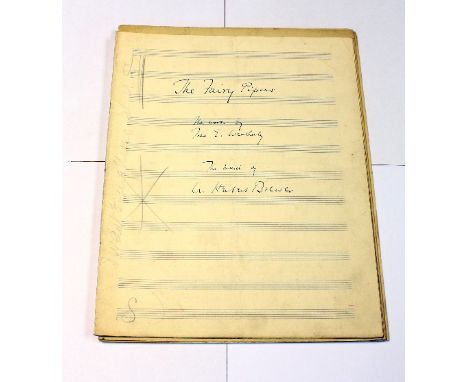 The Fairy Pipers
the words by
Fred. E. Weatherly
The music by
A. Herbert Brewer
S